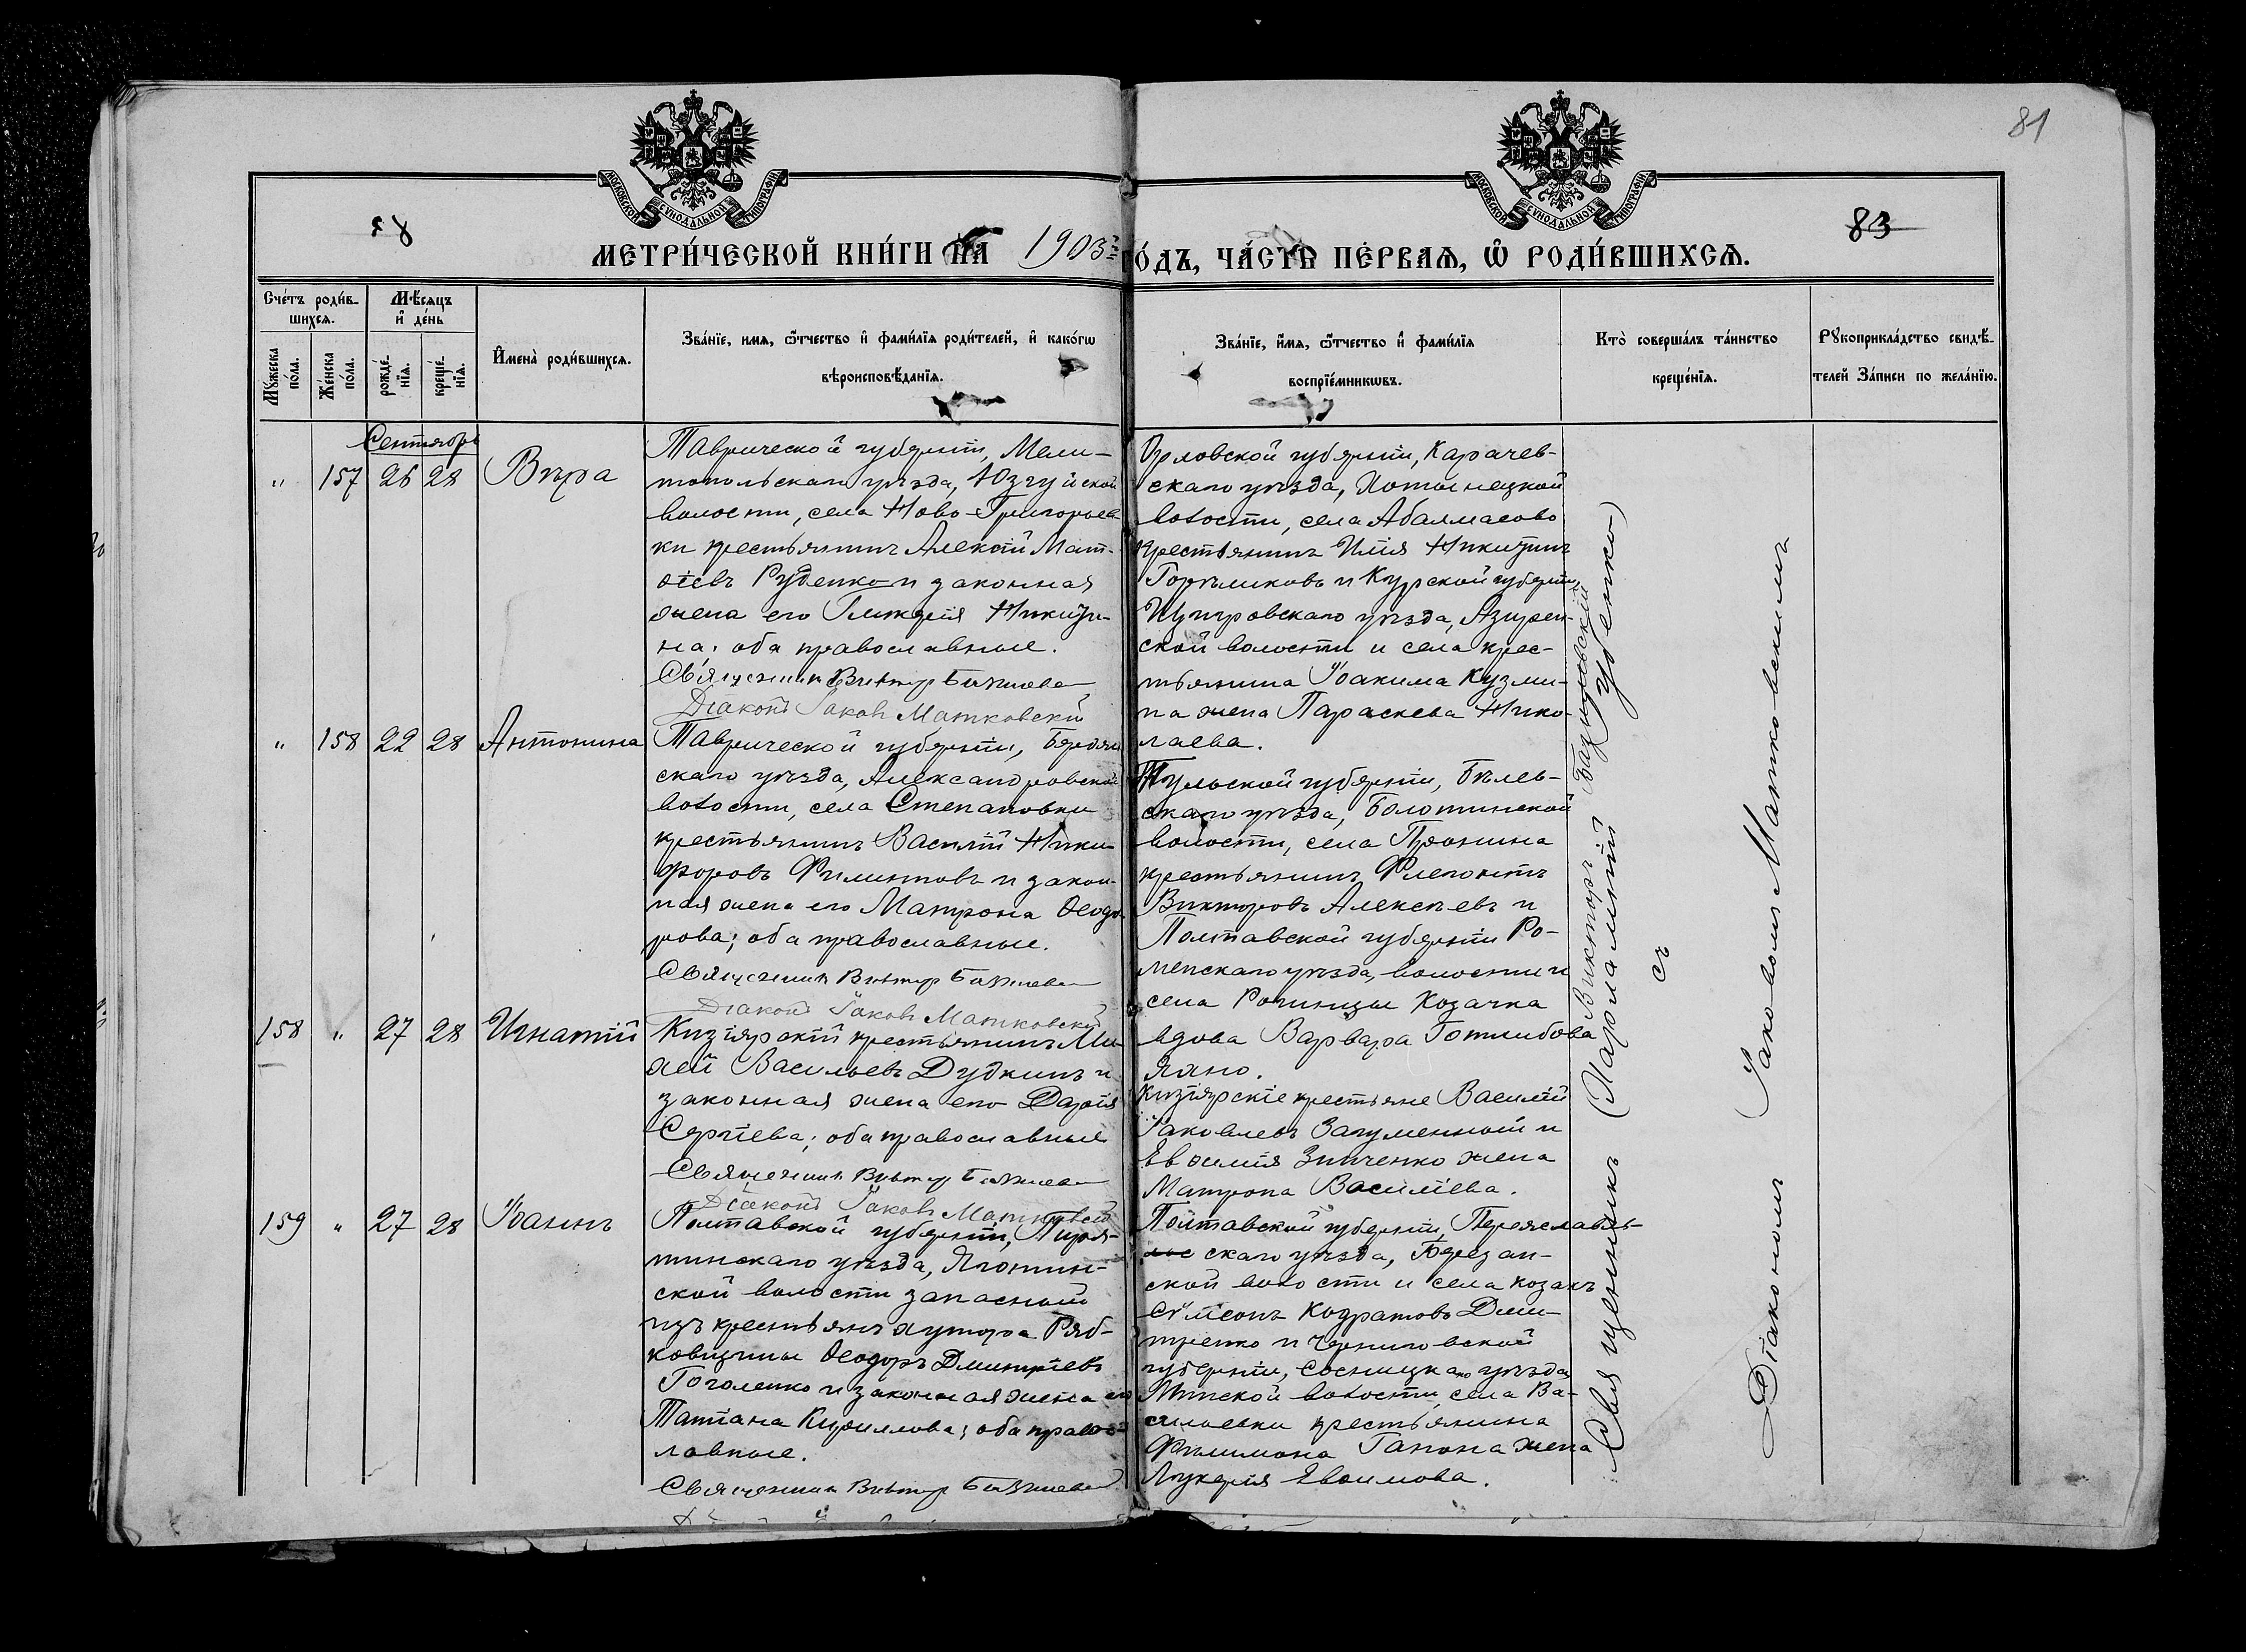 81
МОСКОВСКОЙ СѴНОДАЛЬНОЙ ТИПОГРАФІИ
МОСКОВСКОЙ СѴНОДАЛЬНОЙ ТИПОГРАФІИ
83
МЕТРИ́ЧЕСКОЙ КНИ́ГИ НА 1903 ГО́ДЪ, ЧА́СТЬ ПЕ́РВАЯ, Ѡ҆ РОДИ́ВШИХСЯ.
Сче́тъ роди́в-
шихся.
Мѹ́жеска по́ла.
Же́нска по́ла.
Мѣ́сяцъ
и҆ де́нь
рожде́-
нїя.
креще́-
нїя.
И҆мена̀ роди́вшихся.
Зва́нїе, имя, ѻ҆́тчество и҆ фами́лїя роди́телей, и҆ како́гѡ
вѣроисповѣ́данїя.
Зва́нїе, и҆́мя, ѻ҆́тчество и҆ фами́лїя
воспрїе́мникѡвъ.
Кто̀ соверша́лъ та́инство
креще́нїя.
Рѹкоприкла́дство свидѣ́-
телей За́писи по жела́нїю.
Сентябрь
" 157 26 28 Вѣра
Таврической губерніи, Мели-
топольскаго уѣзда, Юзгуйской
волости, села Ново-Григорьев-
ки крестьянинъ Алексій Мат-
ѳіевъ Руденко и законная
жена его Гликерія Никити-
на; оба православные.
Священникъ Викторъ
Діаконъ Іаковъ Матковскій
Орловской губерніи, Карачев-
скаго уѣзда,
волости, села Абалмасово
крестьянинъ Илія Никитинъ
и Курской губерніи,
Щигровскаго уѣзда,
ской волости и села крес-
тьянина Іоакима Кузми-
на жена Параскева Нико-
лаева.
" 158 22 28 Антонина
Таврической губерніи, Бердян
скаго уѣзда, Александровской
волости, села Степановки
крестьянинъ Василій Ники-
форовъ Филиповъ и закон-
ная жена его Матрона Ѳеодо-
рова; оба православные.
Священникъ Викторъ
Діаконъ Іаковъ Матковскій
Тульской губерніи, Бѣлев-
скаго уѣзда, Болотинской
волости, села Пронина
крестьянинъ Флегонтъ
Викторовъ Алексѣевъ и
Полтавской губерніи Ро-
менскаго уѣзда, волости и
села Рогинцы Козачка
вдова Варвара Готлибова
158 " 27 28 Игнатій
Кизіярскій крестьянинъ Ми-
хей Васильевъ Дудкинъ и
законная жена его Дарія
Сергіева; оба православные
Священникъ Викторъ
Діаконъ Іаковъ Матковскій
Кизіярскіе крестьяне Василій
Іаковлевъ Загуменный и
Евѳимія Зинченко жена
Матрона Василіева.
159 " 27 28 Іоаннъ
Полтавской губерніи, Пиря-
тинскаго уѣзда, Яготин-
ской волости запасный
изъ крестьянъ хутора Ряб-
ковщины Ѳеодоръ Дмитріевъ
Гоголенко и законная жена его
Татіана Кириллова; оба правос-
лавные.
Священникъ Викторъ
Полтавской губерніи, Переяславль-
скаго уѣзда, Березан-
ской волости и села козакъ
Сѵмеонъ Кодратовъ Дми-
тренко и Черниговской
губерніи, Сосницкаго уѣзда
волости, села Ва-
сильевки крестьянина
Филимона Гапона жена
Лукерія Евѳимова.
Священникъ Викторъ
съ
Діакономъ Іаковомъ Матковскимъ